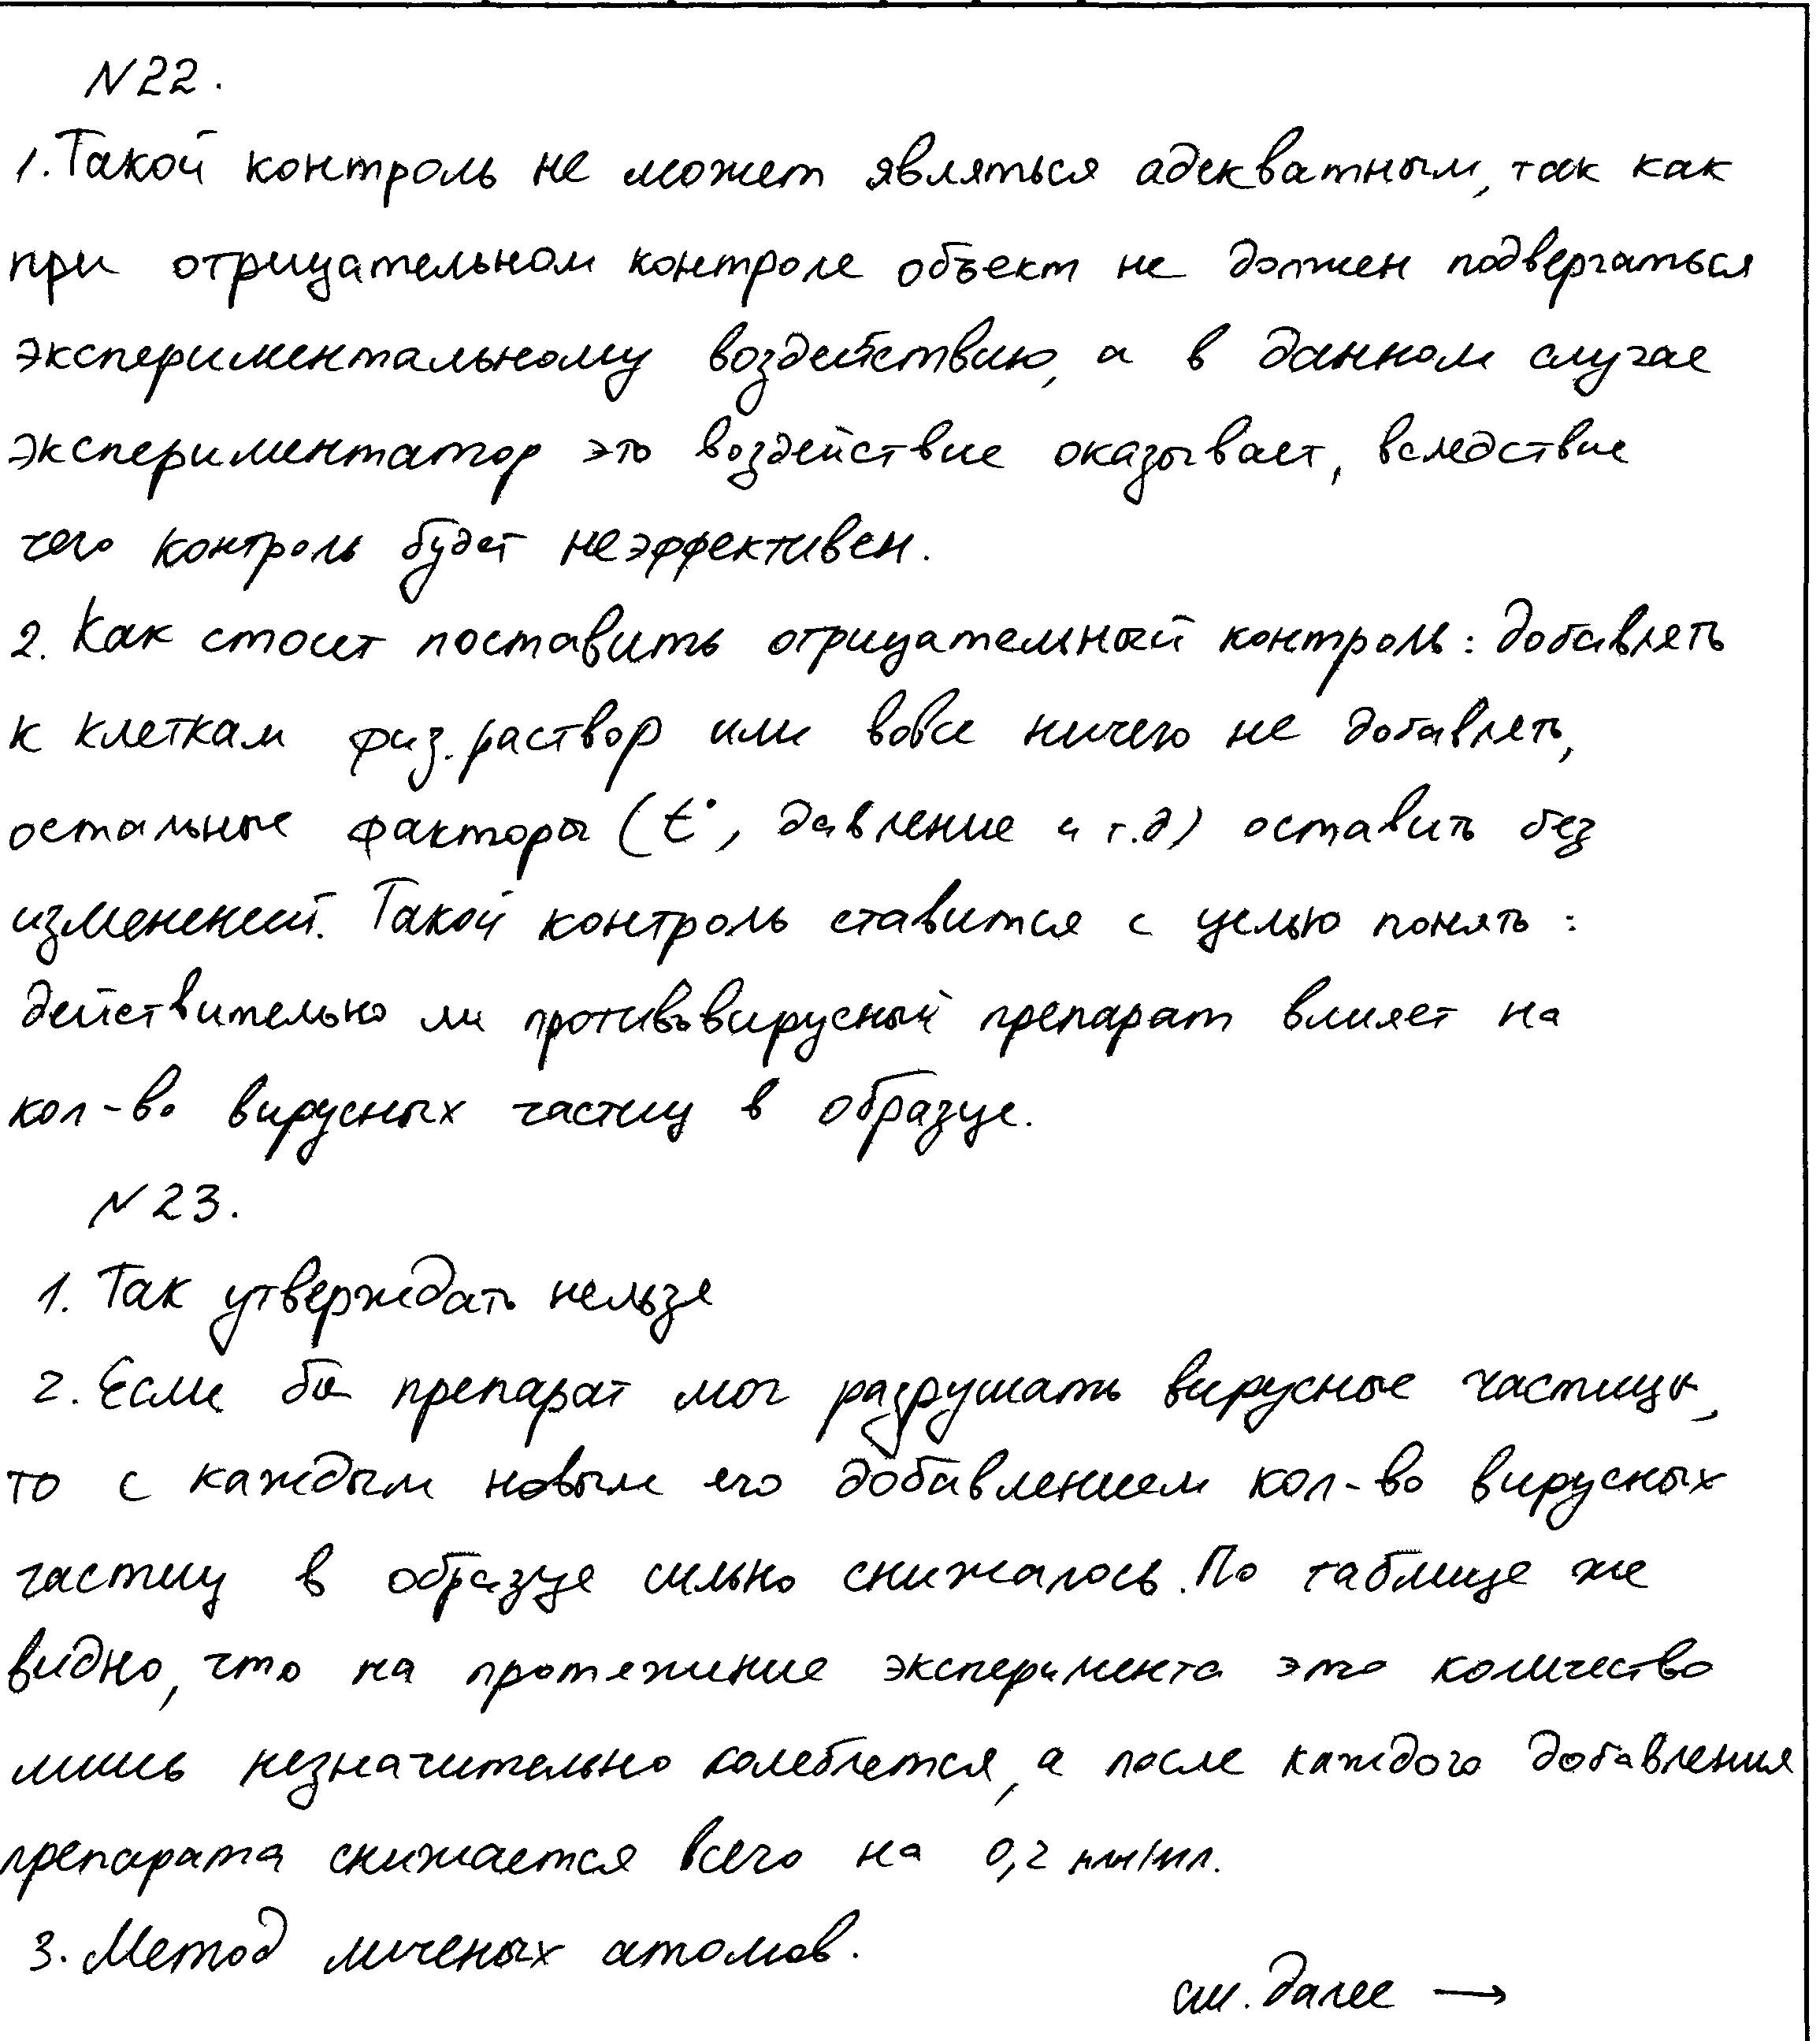 N 22.
1. Такой контроль не может являться адекватным, так как
при отрицательном контроле объект не должен подвергаться
экспериментальному воздействию, а в данном случае
экспериментатор это воздействие оказывает, вследствие
чего контроль будет неэффективен.
2. Как стоит поставить отрицательный контроль: добавлять
к клеткам физ. раствор или вовсе ничего не добавлять,
остальные факторы (t°, давление и т.д) оставить без
изменений. Такой контроль ставится с целью понять:
действительно ли противовирусный препарат влияет на
кол-во вирусных частиц в образце.
N 23.
1. Так утверждать нельзя
2. Если бы препарат мог разрушать вирусные частицы,
то с каждым новым его добавлением кол-во вирусных
частиц в образце сильно снижалось. По таблице же
видно, что на протяжение эксперимента это количество
лишь незначительно колеблется, а после каждого добавления
препарата снижается всего на 0,2 млн/мл.
3. Метод меченых атомов.
см. далее →